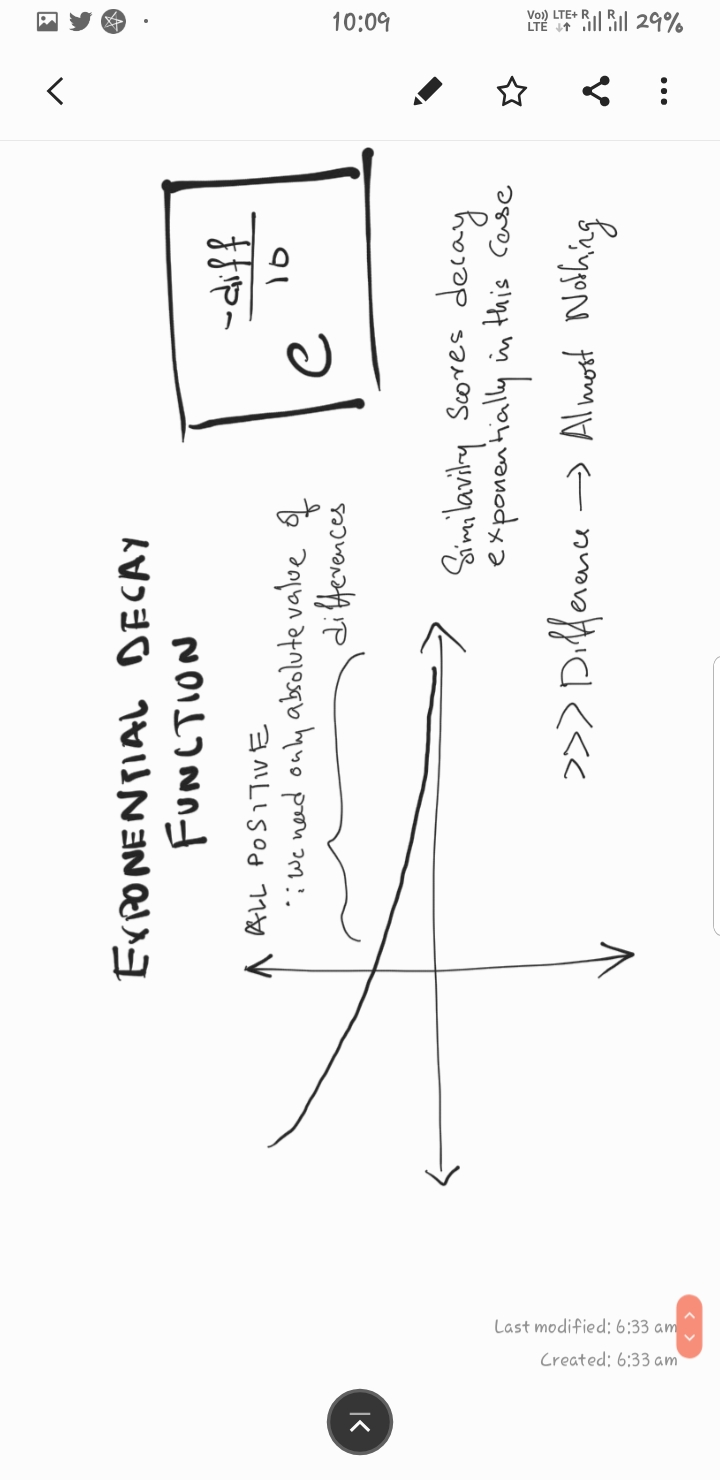 10:09
Vo)) LTE+ R R 29%
LTE
EXPONENTIAL DECAY
FUNCTION
e
-diff
10
ALL POSITIVE
∵ we need only absolute value of
differences
Similarity Scores decay
exponentially in this case
>>> Difference → Almost Nothing
Last modified: 6:33 am
Created: 6:33 am